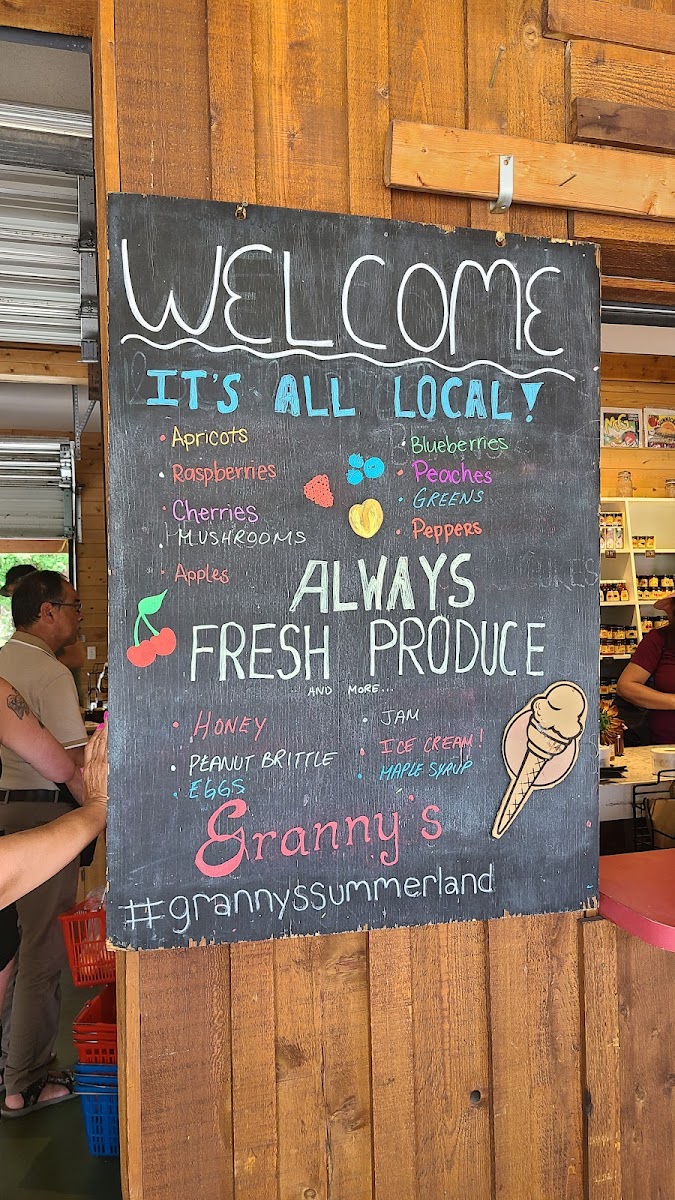 WELCOME
IT'S ALL LOCAL!
• Apricots
• Raspberries
• Cherries
• MUSHROOMS
• Apples
• Blueberries
• Peaches
• GREENS
• Peppers
ALWAYS
FRESH PRODUCE
AND MORE...
• HONEY
• PEANUT BRITTLE
• EGGS
• JAM
• ICE CREAM!
• MAPLE SYRUP
Granny's
#grannyssummerland